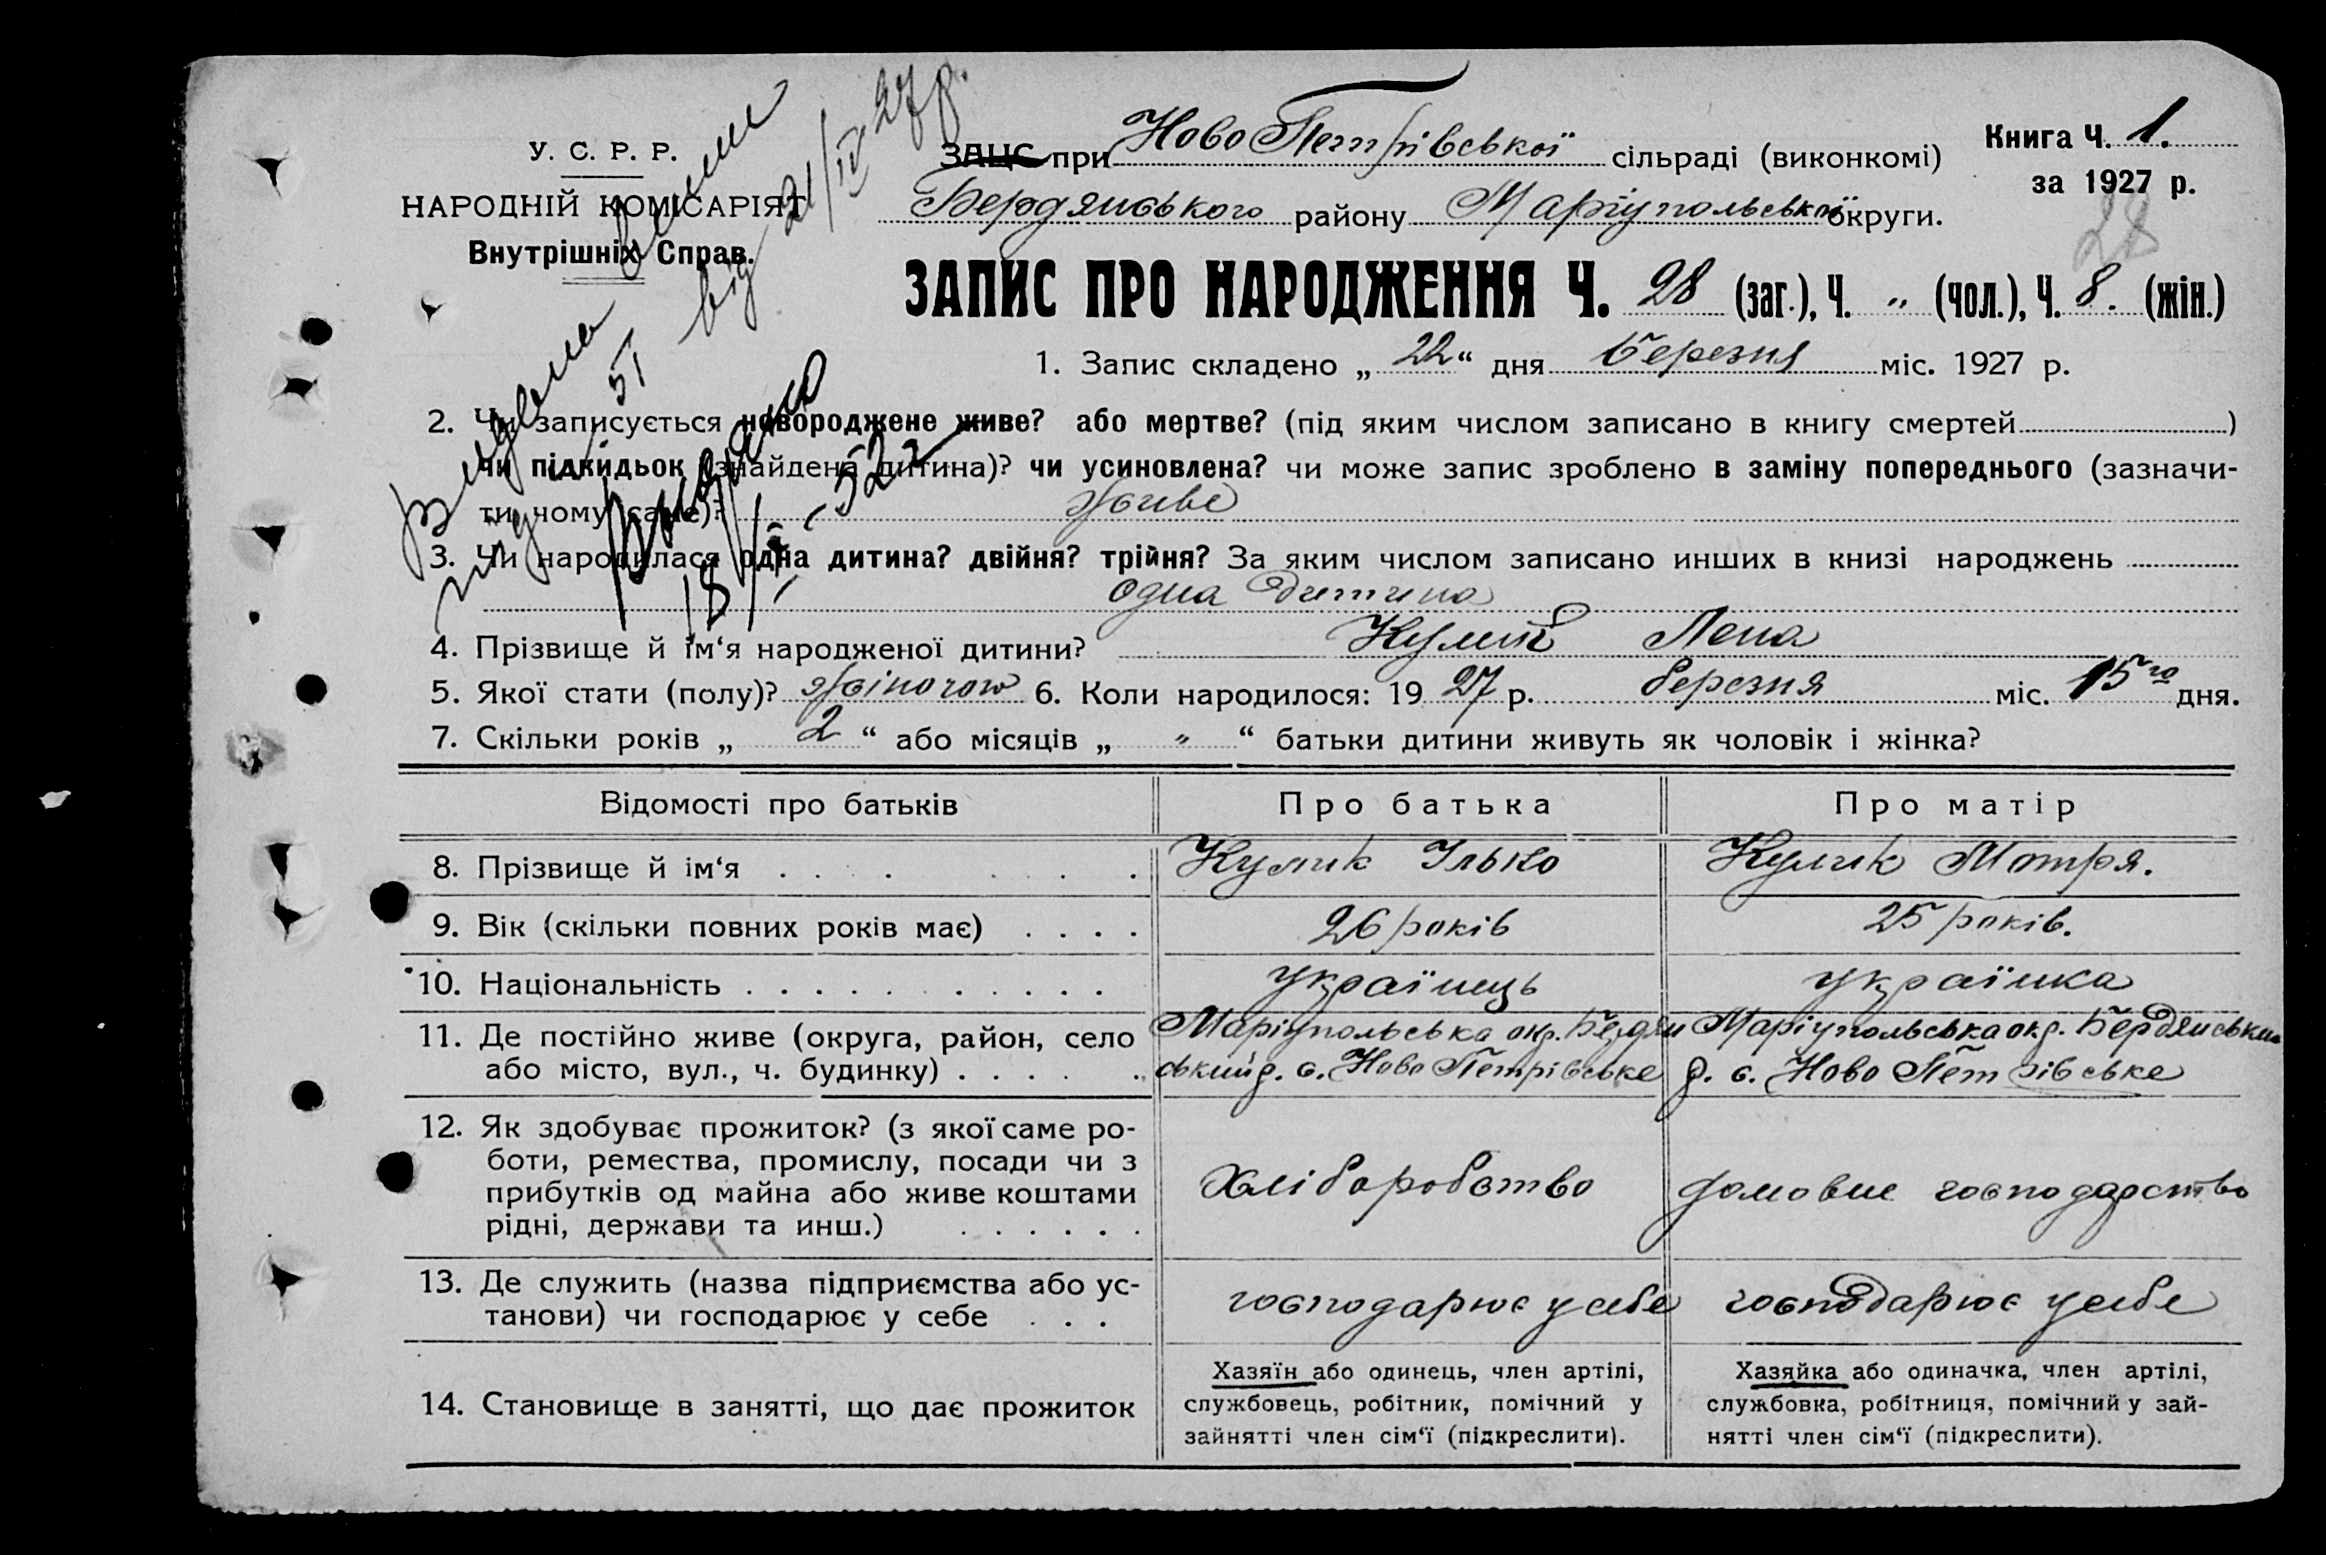 У. С. Р. Р.
НАРОДНІЙ КОМІСАРІЯТ
Внутрішніх Справ.
ЗАЦС при Ново Петрівської сільраді (виконкомі)
Бердянського району Маріупольської округи.
Книга Ч. 1.
за 1927 р.
28
ЗАПИС ПРО НАРОДЖЕННЯ Ч. 28 (заг.), Ч. „ (чол.), Ч. 8. (жін.)
від 21/IV 27 р.
1. Запис складено „ 22 “ дня березня міс. 1927 р.
2. Чи записується новороджене живе? або мертве? (під яким числом записано в книгу смертей )
чи підкидьок (знайдена дитина)? чи усиновлена? чи може запис зроблено в заміну попереднього (зазначи-
ти чому саме)? живе
3. Чи народилася одна дитина? двійня? трійня? За яким числом записано инших в книзі народжень
одна дитина
4. Прізвище й ім‘я народженої дитини? Кулик Лена
5. Якої стати (полу)? жіночої 6. Коли народилося: 19 27 р. березня міс. 15го дня.
7. Скільки років „ 2 “ або місяців „ „ “ батьки дитини живуть як чоловік і жінка?
Відомості про батьків Про батька Про матір
8. Прізвище й ім‘я Кулик Ілько Кулик Мотря.
9. Вік (скільки повних років має) 26 років 25 років.
10. Національність українець українка
11. Де постійно живе (округа, район, село
або місто, вул., ч. будинку)
Маріупольська окр. Бердян
ський р. с. Ново Петрівське
Маріупольська окр. Бердянський
р. с. Ново Петрівське
12. Як здобуває прожиток? (з якої саме ро-
боти, ремества, промислу, посади чи з
прибутків од майна або живе коштами
рідні, держави та инш.)
Хліборобство
домовне господарство
13. Де служить (назва підприємства або ус-
танови) чи господарює у себе
господарює у себе
господарює у себе
14. Становище в занятті, що дає прожиток
Хазяїн або одинець, член артілі,
службовець, робітник, помічний у
зайнятті член сім‘ї (підкреслити).
Хазяйка або одиначка, член артілі,
службовка, робітниця, помічний у зай-
нятті член сім‘ї (підкреслити).